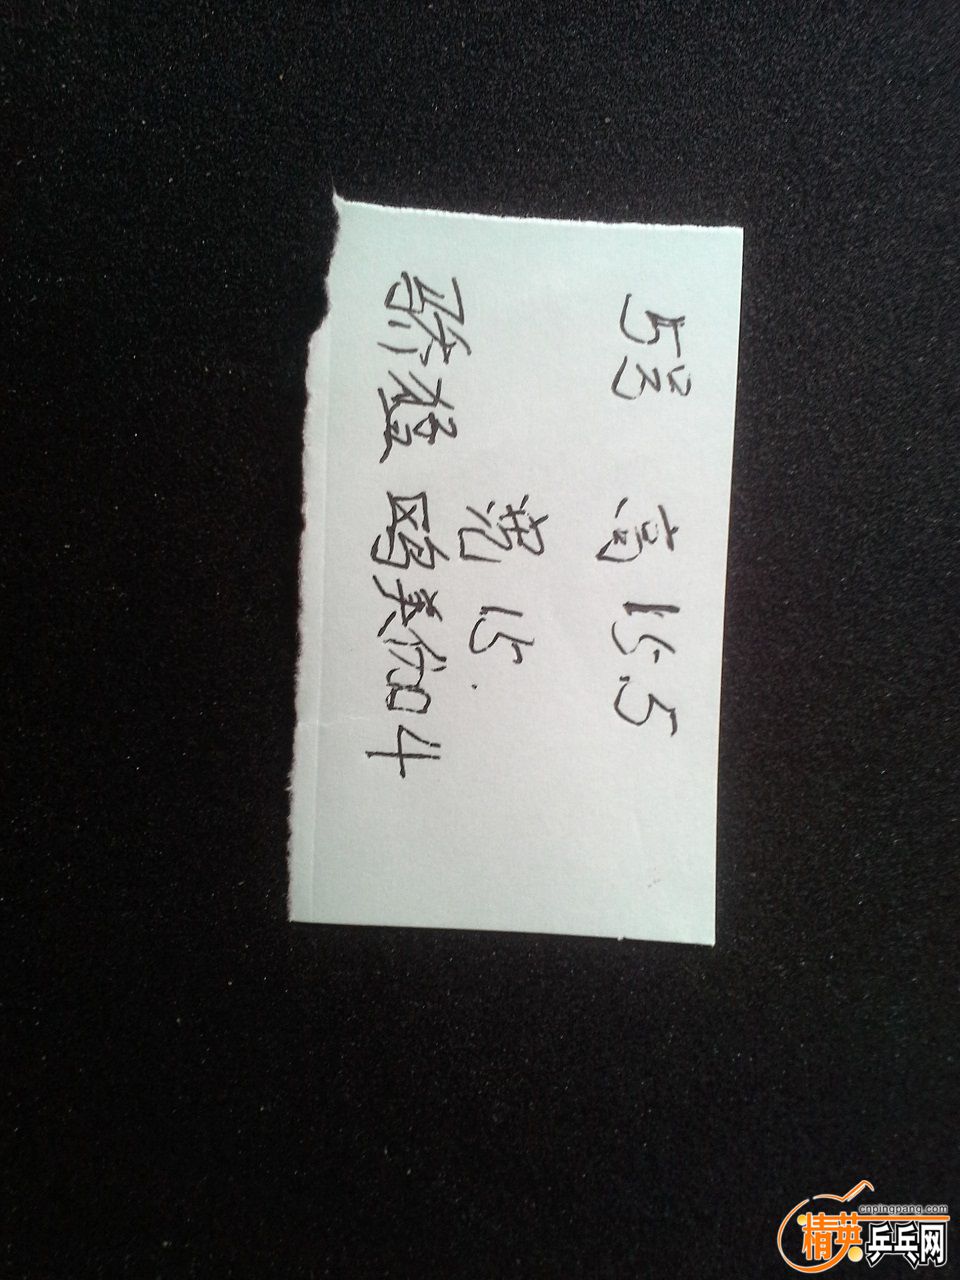 5号 高 15.5
宽 15.
骄猛 鸥美伽4
cnpingpang.com
精英乒乓网